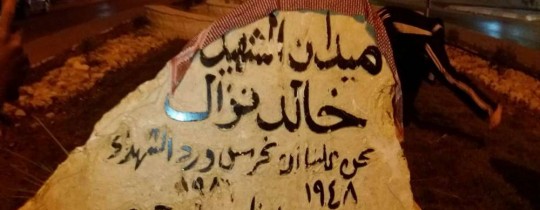 ميدان الشهيد
خالد نزال
نحن علينا ان نحرس ورد الشهداء
١٩٤٨ ١٩٨٦